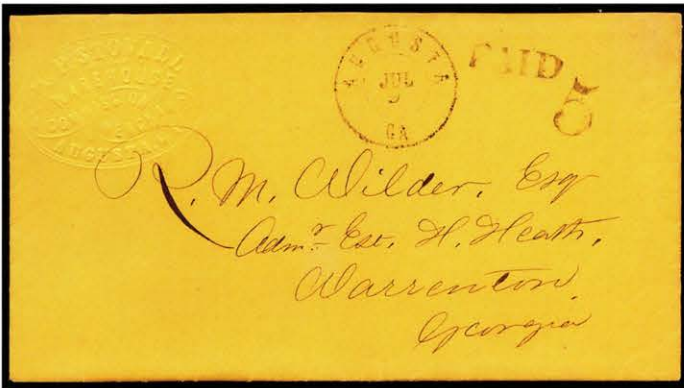 STOVALL
WAREHOUSE
AUGUSTA
AUGUSTA
JUL
9
GA
PAID
5
R. M. Wilder, Esq
Admr. Est. H. Heath,
Warrenton
Georgia